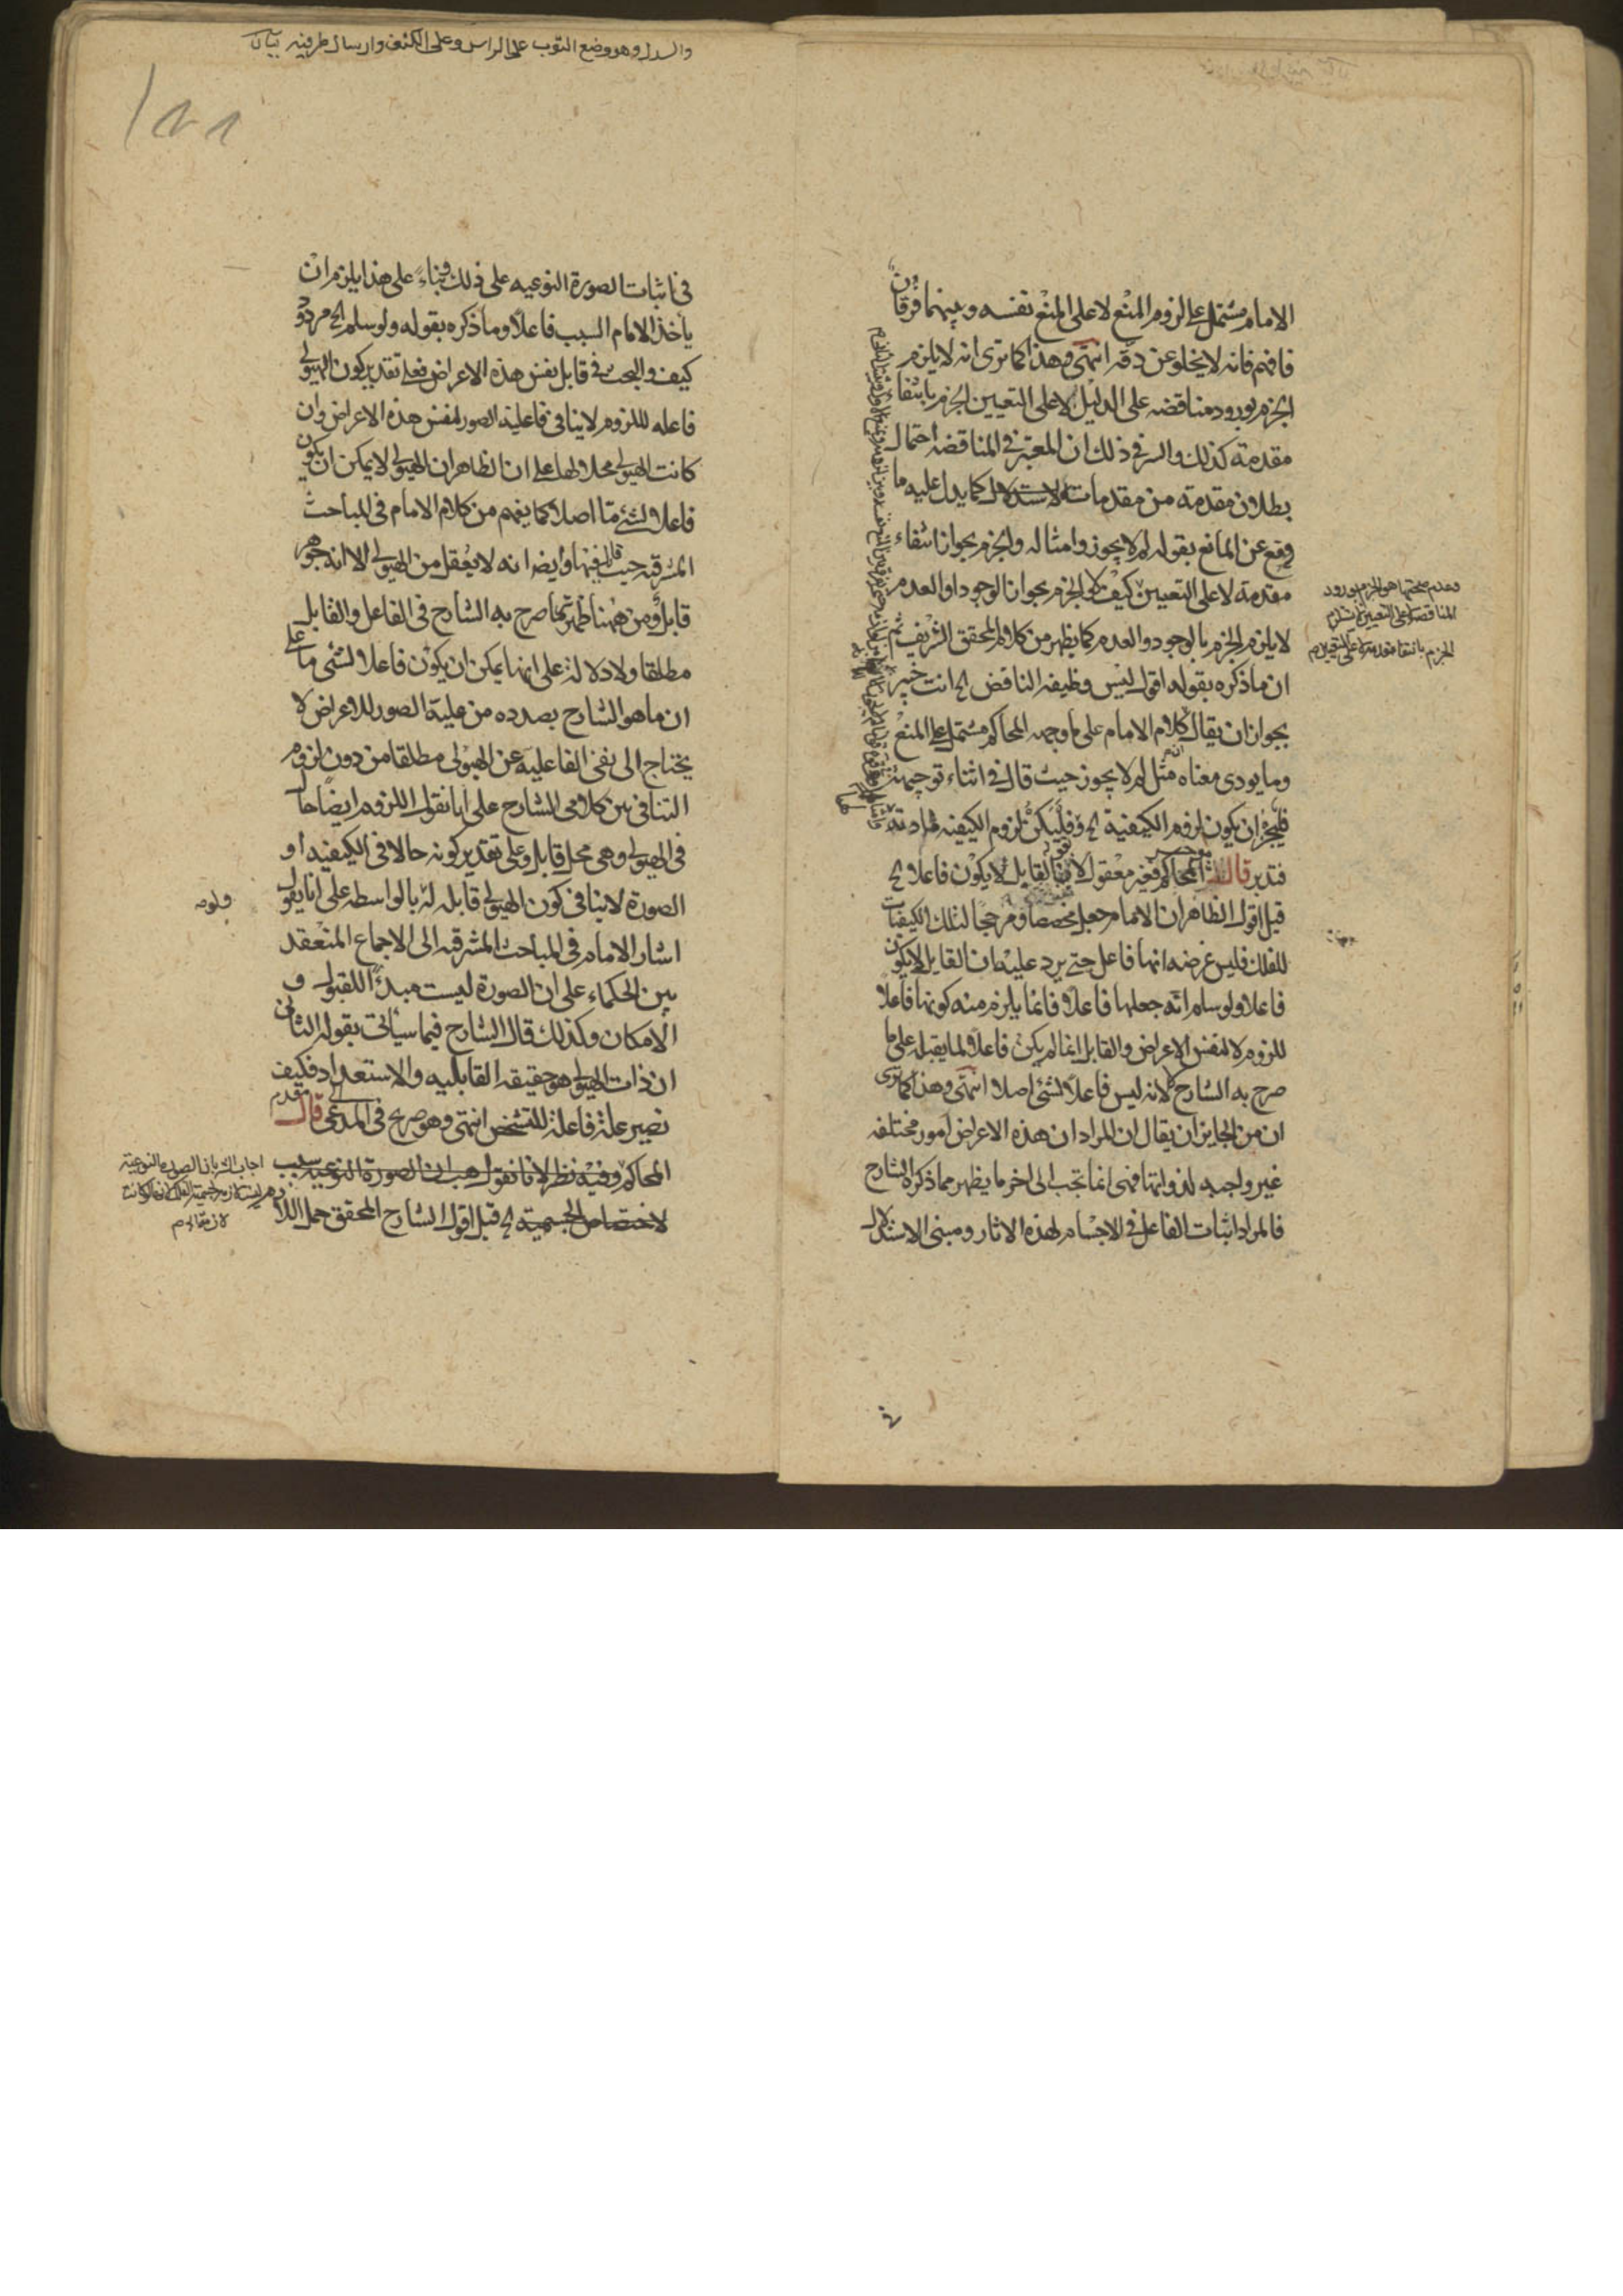 الامام مشتمل على لزوم المنع لا على المنع نفسه وبينهما فرقان
فافهم فانه لا يخلو عن دقه انتهى وهذا كما ترى انه لا يلزم
الجزم بورود مناقضه على الدليل لا على التعيين الجزم بانتفا
مقدمة كذلك والسر في ذلك ان المعتبر في المناقضه احتمال
بطلان مقدمة من مقدمات الاستدلال كما يدل عليه ما
وقع عن المانع بقوله لم لا يجوز وامثاله والجزم بجواز انتفاء
مقدمة لا على التعيين كيف لا والجزم بجواز الوجود او العدم
لا يلزم الجزم بالوجود والعدم كما يظهر من كلام المحقق الشريف ثم
ان ما ذكره بقوله اقول ليس وظيفه الناقض الخ انت خبير
بجواز ان يقال كلام الامام على ما وجهه المحاكم مشتمل على المنع
وما يودي معناه مثل لم لا يجوز حيث قال في اثناء توجيهه
فليجز ان يكون لزوم الكيفية الخ وفليكن لزوم الكيفيه لمادته
فتدبر قال المحاكم فغير معقول لان القابل لا يكون فاعلا الخ
قيل اقول الظاهر ان الامام جعل مخصصا ومرجحا لتلك الكيفيات
للفلك فليس غرضه انها فاعل حتى يرد عليه ان القابل لا يكون
فاعلا ولو سلم انه جعلها فاعلا فانما يلزم منه كونها فاعلا
للزوم لا لنفس الاعراض والقابل انما لم يكن فاعلا لما يقبله على ما
صرح به الشارح لا انه ليس فاعلا لشئ اصلا انتهى وهذا كما ترى
ان من الجايز ان يقال ان المراد ان هذه الاعراض امور مختلفه
غير واجبه لذواتها فهي انما تجب الى اخر ما يظهر مما ذكره الشارح
فالمراد اثبات الفاعل في الاجسام لهذه الاثار ومبنى الاستدلال
وعدم صحتها هو الجزم بورود
المناقضه لا على التعيين لا يستلزم
الجزم بانتفا مقدمة لا على التعيين م
والسدل وهو وضع الثوب على الراس وعلى الكتف وارسال طرفيه
١٨٨
في اثبات الصورة النوعيه على ذلك وبناء على هذا يلزم ان
ياخذ الامام السبب فاعلا وما ذكره بقوله ولو سلم الخ مردود
كيف والبحث في قابل نفس هذه الاعراض فعلى تقدير كون الهيولى
فاعله للزوم لا ينافي فاعلية الصور لنفس هذه الاعراض وان
كانت الهيولى محلا لها على ان الظاهر ان الهيولى لا يمكن ان يكون
فاعلا لشئ ما اصلا كما يفهم من كلام الامام في المباحث
المشرقيه حيث قال فيها وايضا انه لا يعقل من الهيولى الا انه جوهر
قابل ومن ههنا ظهر تما صرح به الشارح في الفاعل والقابل
مطلقا ولا دلالة على انها يمكن ان يكون فاعلا لشئ ما على
ان ما هو الشارح بصدده من علية الصور للاعراض لا
يحتاج الى نفي الفاعليه عن الهيولى مطلقا من دون لزوم
التنافي بين كلامي الشارح على انا نقول اللزوم ايضا حال
في الهيولى وهي محل قابل وعلى تقدير كونه حالا في الكيفيه او
الصورة لا ينافي كون الهيولى قابله له بالواسطه على انا نقول
اشار الامام في المباحث المشرقيه الى الاجماع المنعقد
بين الحكماء على ان الصورة ليست مبدءا للقبول و
الامكان وكذلك قال الشارح فيما سياتي بقوله الثاني
ان ذات الهيولى هو حقيقه القابليه والاستعداد فكيف
تصير علة فاعلة للتشخص انتهى وهو صريح في المدعى قال
المحاكم وفيه نظر لانا نقول هب ان الصورة النوعيه سبب
لاختصاص الجسمية الخ قيل اقول الشارح المحقق حمل اللا